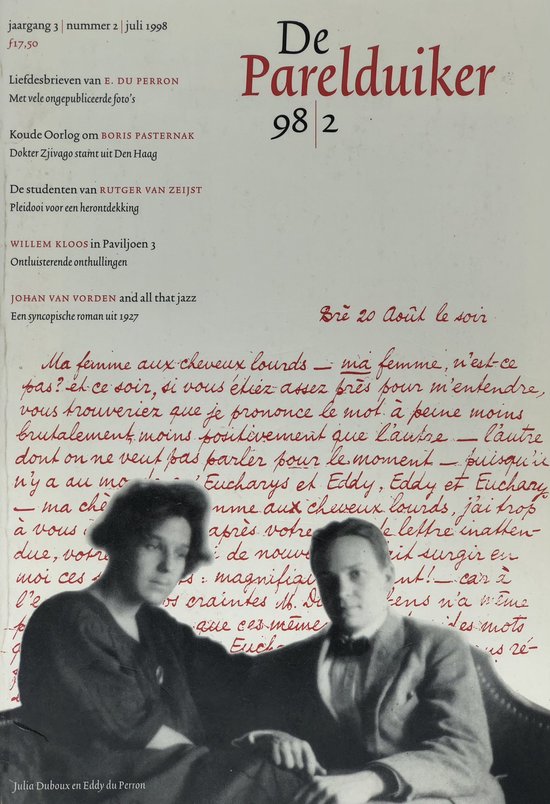 jaargang 3 | nummer 2 | juli 1998
ƒ17,50
De
Parelduiker
98|2
Liefdesbrieven van E. DU PERRON
Met vele ongepubliceerde foto's
Koude Oorlog om BORIS PASTERNAK
Dokter Zjivago stamt uit Den Haag
De studenten van RUTGER VAN ZEIJST
Pleidooi voor een herontdekking
WILLEM KLOOS in Paviljoen 3
Ontluisterende onthullingen
JOHAN VAN VORDEN and all that jazz
Een syncopische roman uit 1927
Brè 20 Août le soir
Ma femme aux cheveux lourds — ma femme, n'est-ce
pas? et ce soir, si vous étiez assez près pour m'entendre,
vous trouveriez que je prononce le mot à peine moins
brutalement, moins positivement que l'autre — l'autre
dont on ne veut pas parler pour le moment — puisqu'i
n'y a au mo Eucharys et Eddy, Eddy et Euchary
— ma ch mme aux cheveux lourds, j'ai trop
à vous après votre de lettre inatten-
due, votr de nouve ait surgir en
moi ces : magnifi nt! — car à
l'e os craintes M. D ens n'a même
que ces même des mots
Euch us ré-
Julia Duboux en Eddy du Perron